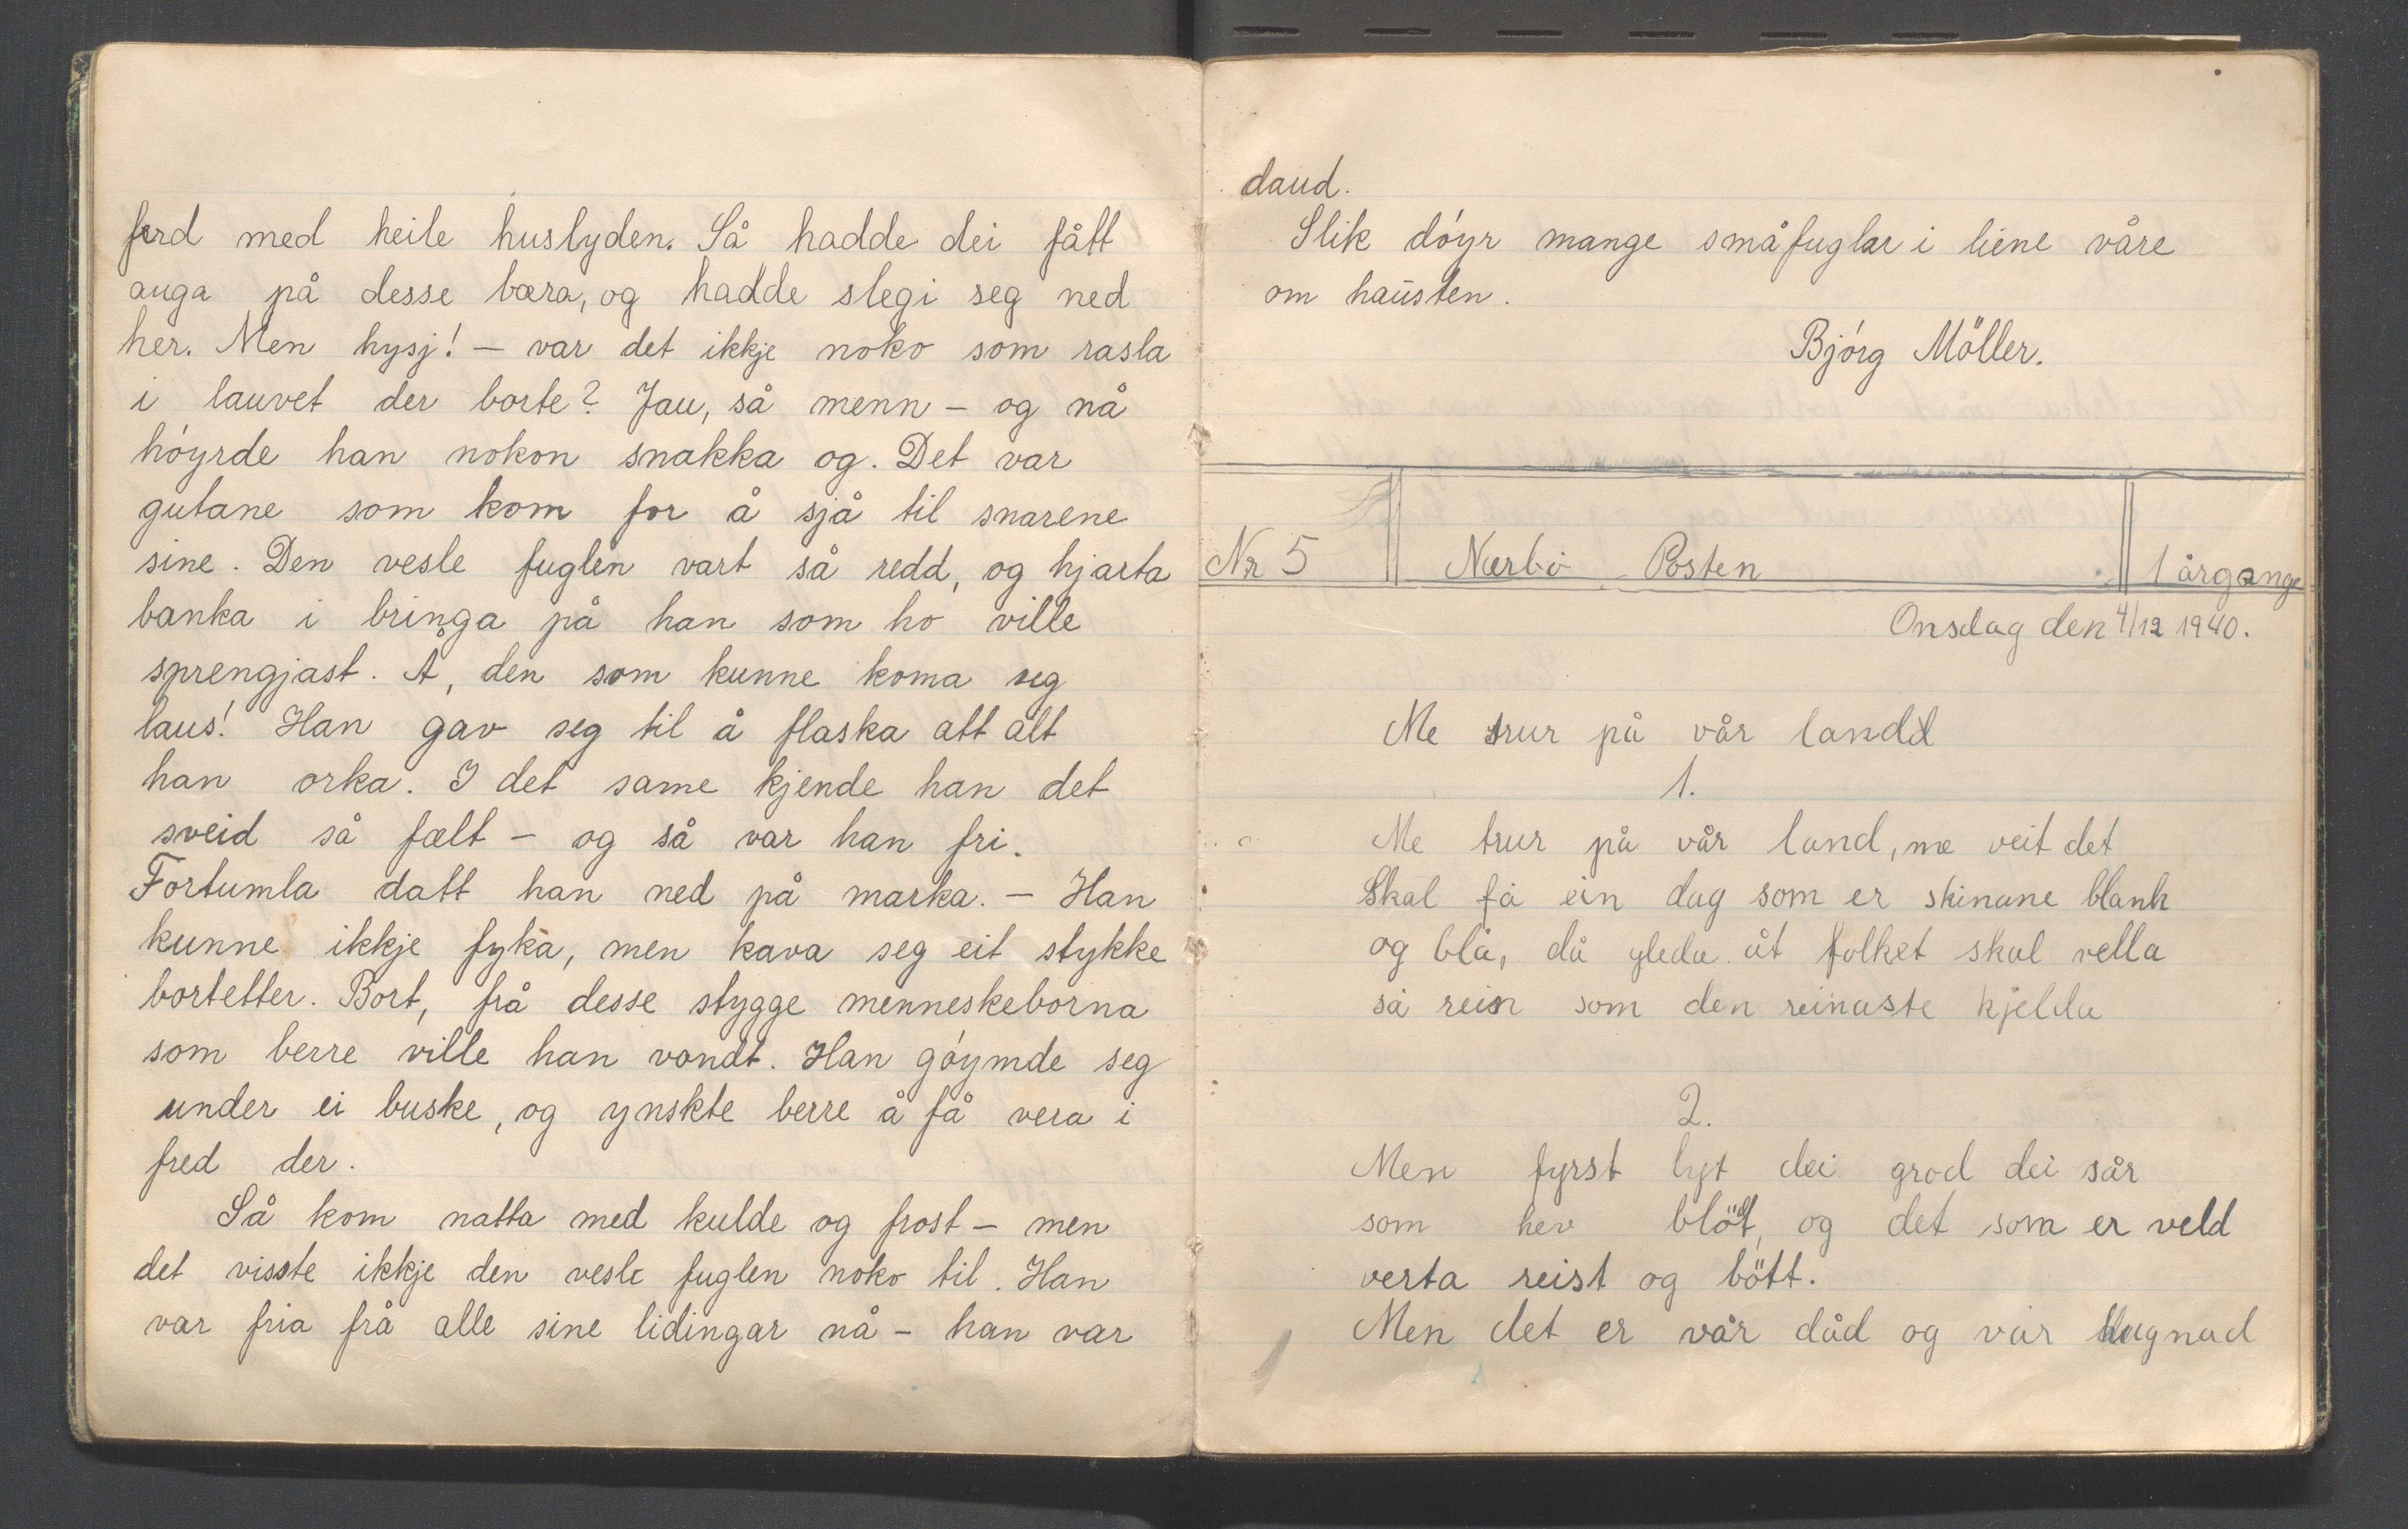 ferd med heile huslyden. Så hadde dei fått
auga på desse bæra, og hadde slegi seg ned
her. Men hysj! – var det ikkje noko som rasla
i lauvet der borte? Jau, så menn – og nå
høyrde han nokon snakka og. Det var
gutane som kom for å sjå til snarene
sine. Den vesle fuglen vart så redd, og hjarta
banka i bringa på han som ho ville
sprengjast. Å, den som kunne koma seg
laus! Han gav seg til å flaska alt alt
han orka. I det same kjende han det
sveid så fælt – og så var han fri.
Fortumla datt han ned på marka. – Han
kunne ikkje fyka, men kava seg eit stykke
bortetter. Bort, frå desse stygge menneskeborna
som berre ville han vondt. Han gøymde seg
under ei buske, og ynskte berre å få vera i
fred der.
Så kom natta med kulde og frost – men
det visste ikkje den vesle fuglen noko til. Han
var fria frå alle sine lidingar nå – han var
daud.
Slik døyr mange småfuglar i liene våre
om hausten.
Bjørg Möller.
Nr 5 Nærbø Posten 1 årgange
Onsdag den 4/12 1940.
Me trur på vår landd
1.
Me trur på vår land, me veit det
Skal få ein dag som er skinane blank
og blå, då gleda åt folket skal vella
så rein som den reinaste kjelda
2.
Men fyrst lyt dei grod dei sår
som hev blött, og det som er veld
verta reist og bött.
Men det er vår dåd og vår hugnad